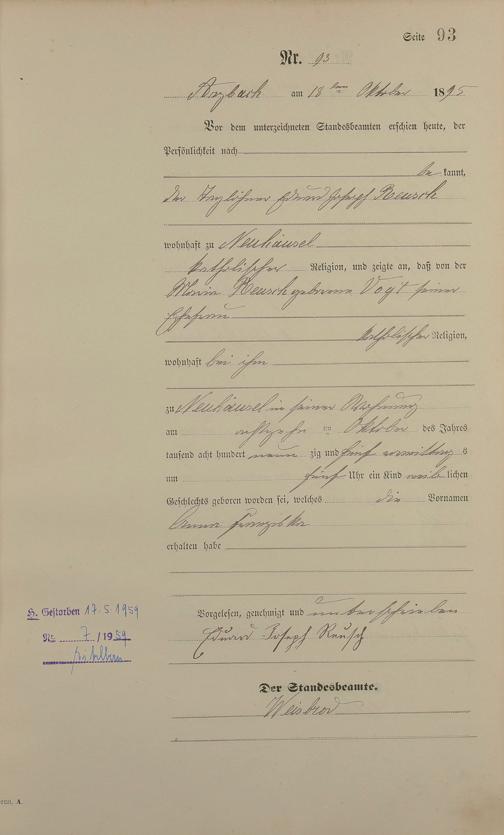 Seite 93
Nr. 93
Arzbach am 18ten Oktober 1895
Vor dem unterzeichneten Standesbeamten erschien heute, der
Persönlichkeit nach
bekannt,
der Taglöhner Eduard Joseph Reusch
wohnhaft zu Neuhäusel
katholischer Religion, und zeigte an, daß von der
Maria Reusch geborene Vogt seiner
Ehefrau
katholischer Religion,
wohnhaft bei ihm
zu Neuhäusel in seiner Wohnung
am achtzehn ten Oktober des Jahres
tausend acht hundert neunzig und fünf vormittags
um fünf Uhr ein Kind weiblichen
Geschlechts geboren worden sei, welches die Vornamen
Anna Franziska
erhalten habe
H. Gestorben 17.5.1959
Nr. 7/1959
Vorgelesen, genehmigt und unterschrieben
Eduard Joseph Reusch
Der Standesbeamte.
Weisbrod
A.